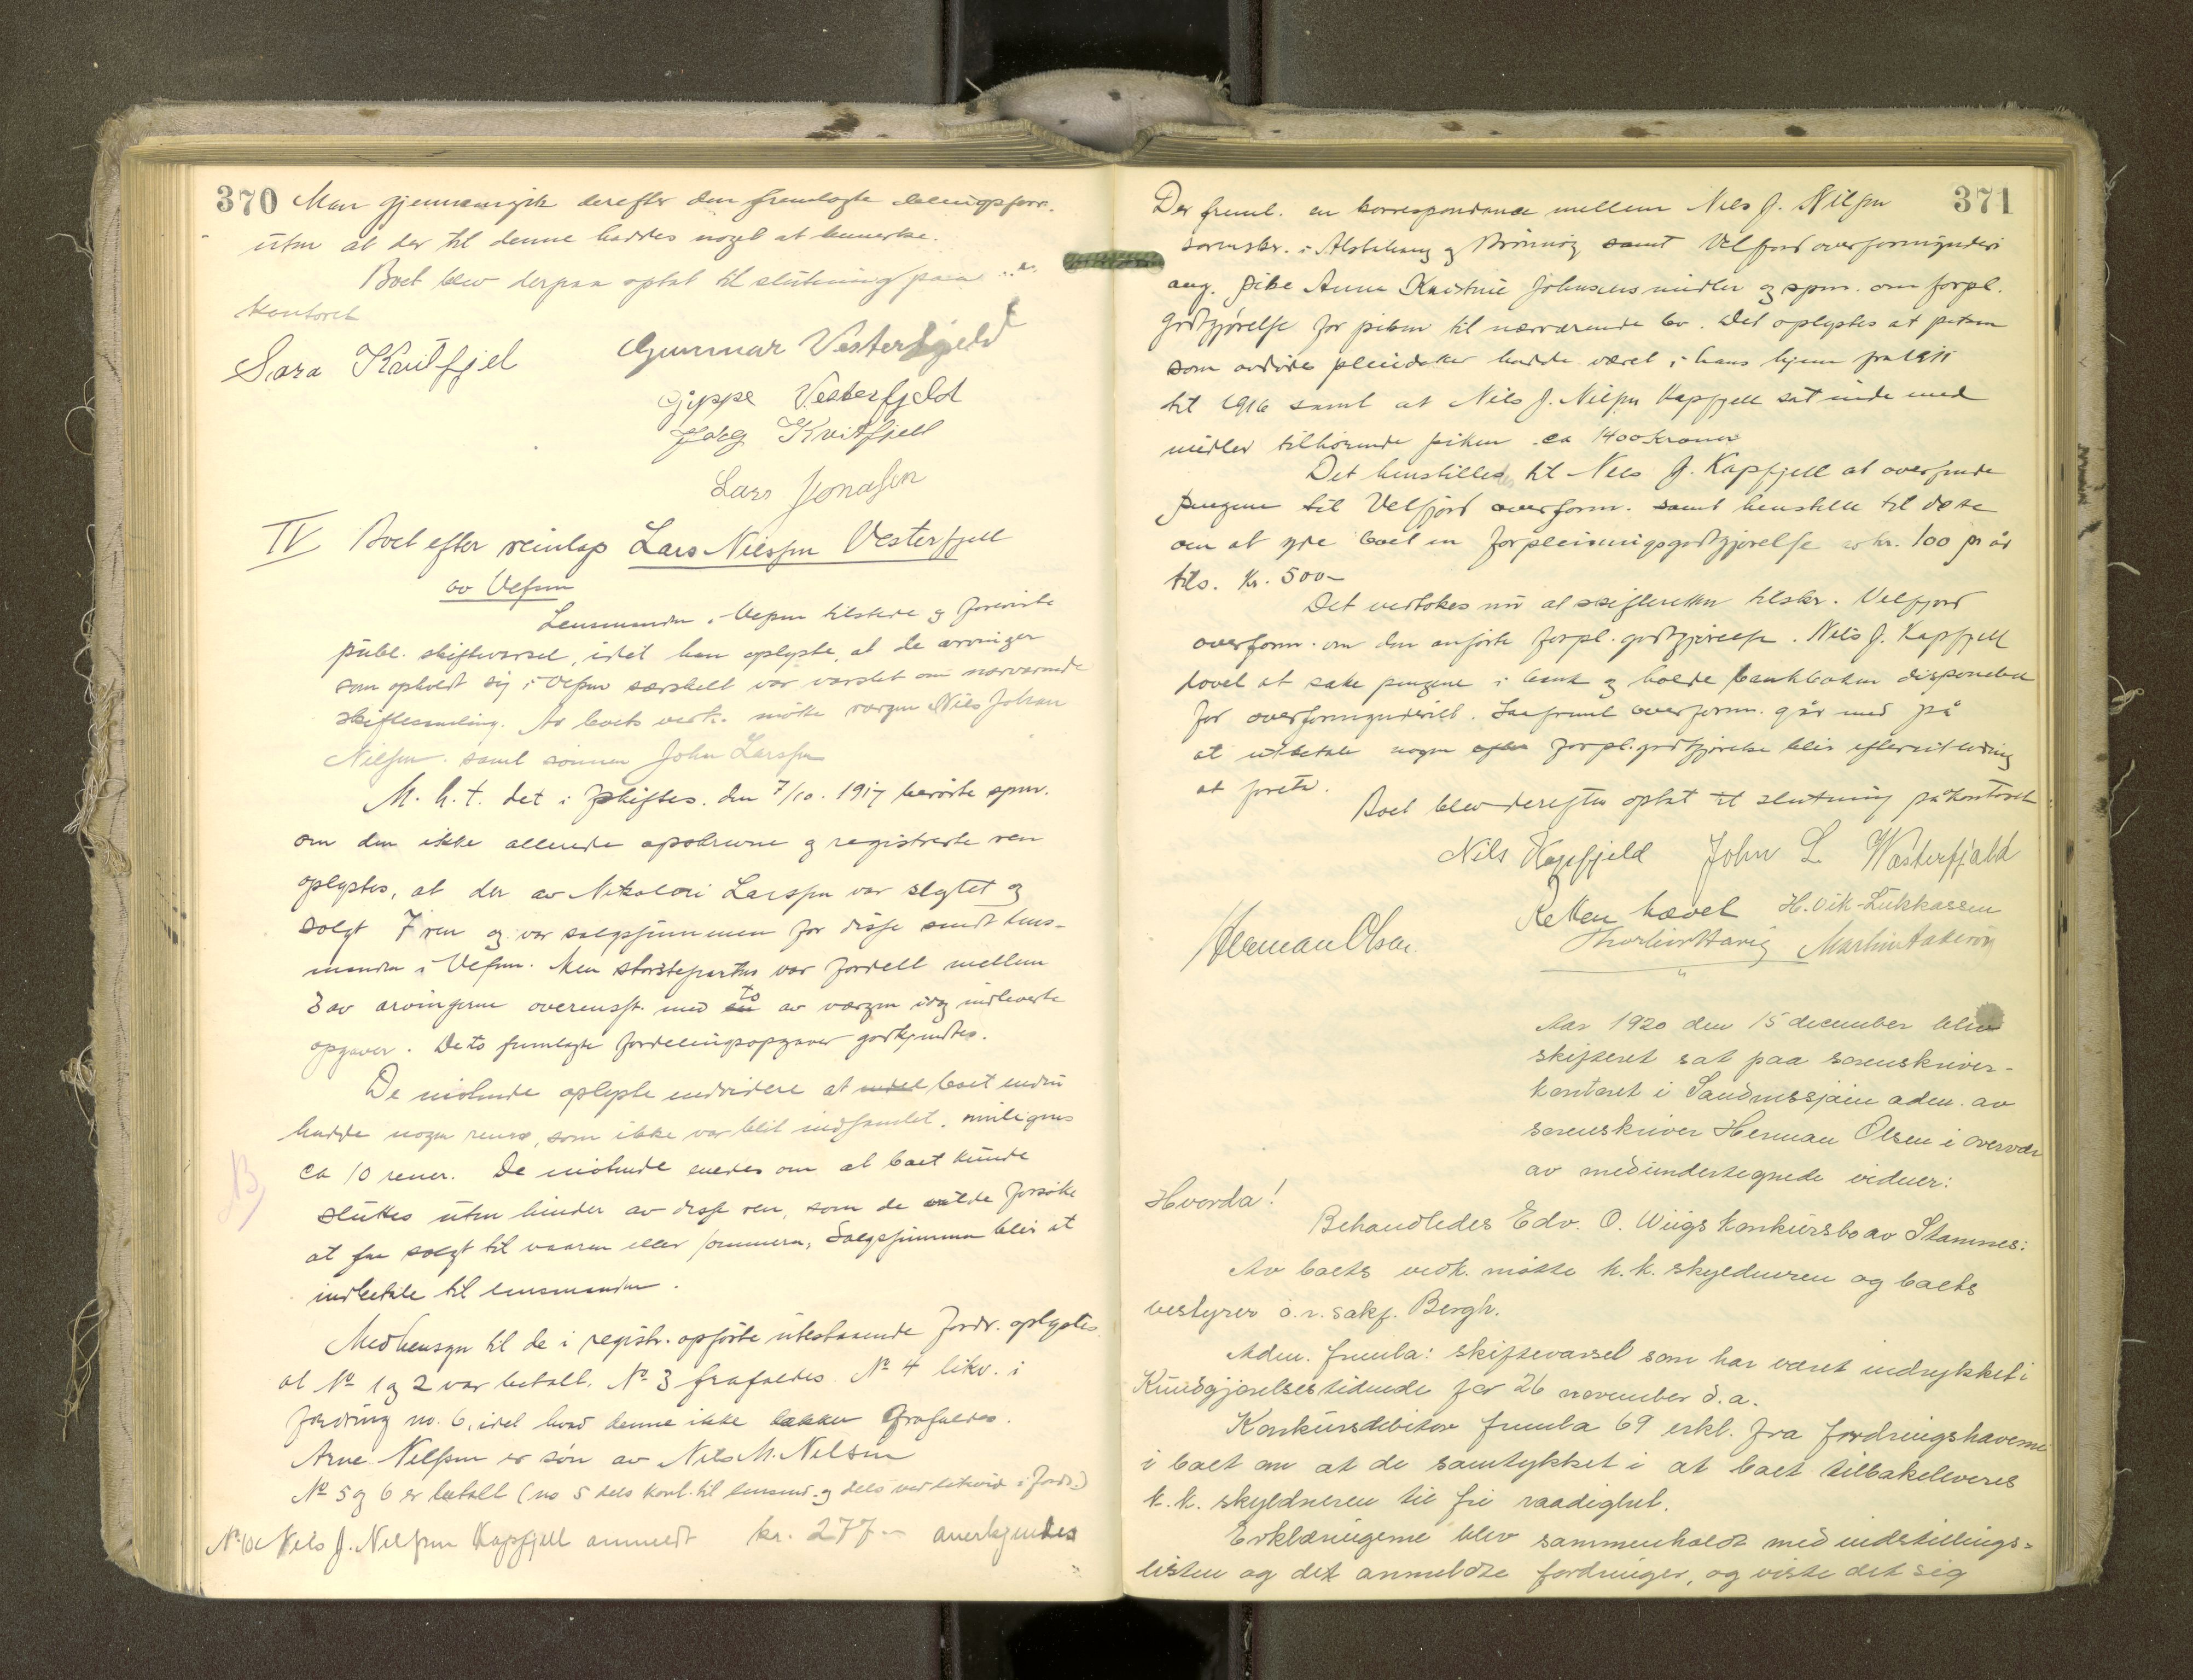 370 Man gjennemgik derefter den fremlagte delingsforr.
uten at der til denne haddes noget at bemerke.
Boet blev derpaa optat til slutning paa
kontoret
Sara Kvitfjel
Gunnar Vesterfjeld
Gippe Vesterfjeld
Kvitfjell
Lars Jonassen
IV Boet efter reinlap Lars Nilssen Vesterfjell
av Vefsn
Lensmanden i Vefsn tilstede og foreviste
publ. skiftevarsel, idet han oplyste, at de arvinger
som opholdt sig i Vefsn særskilt var varslet om nærværende
skiftesamling. Av boets vedk. møtte vergen Nils Johan
Nilsen samt sønnen John Larssen
M. h. t. det i skiftes. den 7/10. 1917 berørte spm.
om den ikke allerede opskrevne og registrerte ren
oplystes, at der av Nikolai Larssen var slagtet og
solgt 7 ren og var salgssummen for disse sendt lens-
manden i Vefsn. Men størsteparten var fordelt mellem
3 av arvingerne overensst. med to av vergen idag indleverte
opgaver. De to fremlagte fordelingsopgaver godkjendtes.
De møtende oplyste endvidere at boet endnu
hadde nogen rener, som ikke var blit indsamlet, muligens
ca 10 rener. De møtende enedes om at boet kunde
sluttes uten hinder av disse ren, som de vilde forsøke
at faa solgt til vaaren eller sommeren, Salgssummen blir at
indbetale til lensmanden.
Med hensyn til de i registr. opførte utestaaende fordr. oplystes
at No 1 og 2 var betalt. No 3 frafaldes No 4 likv. i
fordring no. 6, idet hvad denne ikke dækker frafaldes.
Arne Nilsen er søn av Nils M. Nilsen
No 5 og 6 er betalt (no 5 dels kont. til lensmd. og dels ved likvid i fordr.)
Nils J. Nilsen Kapfjell anmeldt kr. 277.- anerkjendes
371
Der freml. en korrespondance mellem Nils J. Nilsen
sorenskr. i Alstahaug og Brønnøy samt Velfjord overformynderi
ang. pike Anna Kristine Johnsens midler og spm. om forpl.
godtgjørelse for piken til nærværende bo. Det oplystes at piken
som avdødes pleiedatter hadde været i hans hjem fra 1911
til 1916 samt at Nils J. Nilsen Kapfjell sat inde med
midler tilhørende piken ca 1400 kroner
Det henstilles til Nils J. Kapfjell at oversende
pengene til Velfjord overform. samt henstille til dette
om at yde boet en forpleiningsgodtgjørelse av kr. 100 pr år
tils. kr. 500-
Det vedtokes nu at skifteretten tilskr. Velfjord
overform. om den anførte forpl. godtgjørelse. Nils J. Kapfjell
lovet at sætte pengene i bank og holde bankboken disponibel
for overformynderiet. Saafremt overform. går med på
at utbetale nogen forpl. godtgjørelse blir efterutlodning
at foreta.
Boet blev derefter optat til slutning på kontoret
Nils Kapfjeld John L. Wæsterfjald
Retten hævet H. Vik-Lukkassen
Herman Olsen.
Aar 1920 den 15 december blev
skifteret sat paa sorenskriver-
kontoret i Sandnessjøen adm. av
sorenskriver Herman Olsen i overvær
av medundertegnede vidner:
Hvorda!
Behandledes Edv. O. Wiigs konkursbo av Stamnes:
Av boets vedk. møtte k.k. skyldneren og boets
bestyrer o.r. sakf. Bergh.
Adm. fremla: skiftevarsel som har været indrykket i
Kundgjørelsestidende for 26 november d.a.
Konkursdebitor fremla 69 erkl. fra fordringshaverne
i boet om at de samtykket i at boet tilbakeleveres
k.k. skyldneren til fri raadighet.
Erklæringerne blev sammenholdt med indstillings-
listen og det anmeldte fordringer, og viste det sig